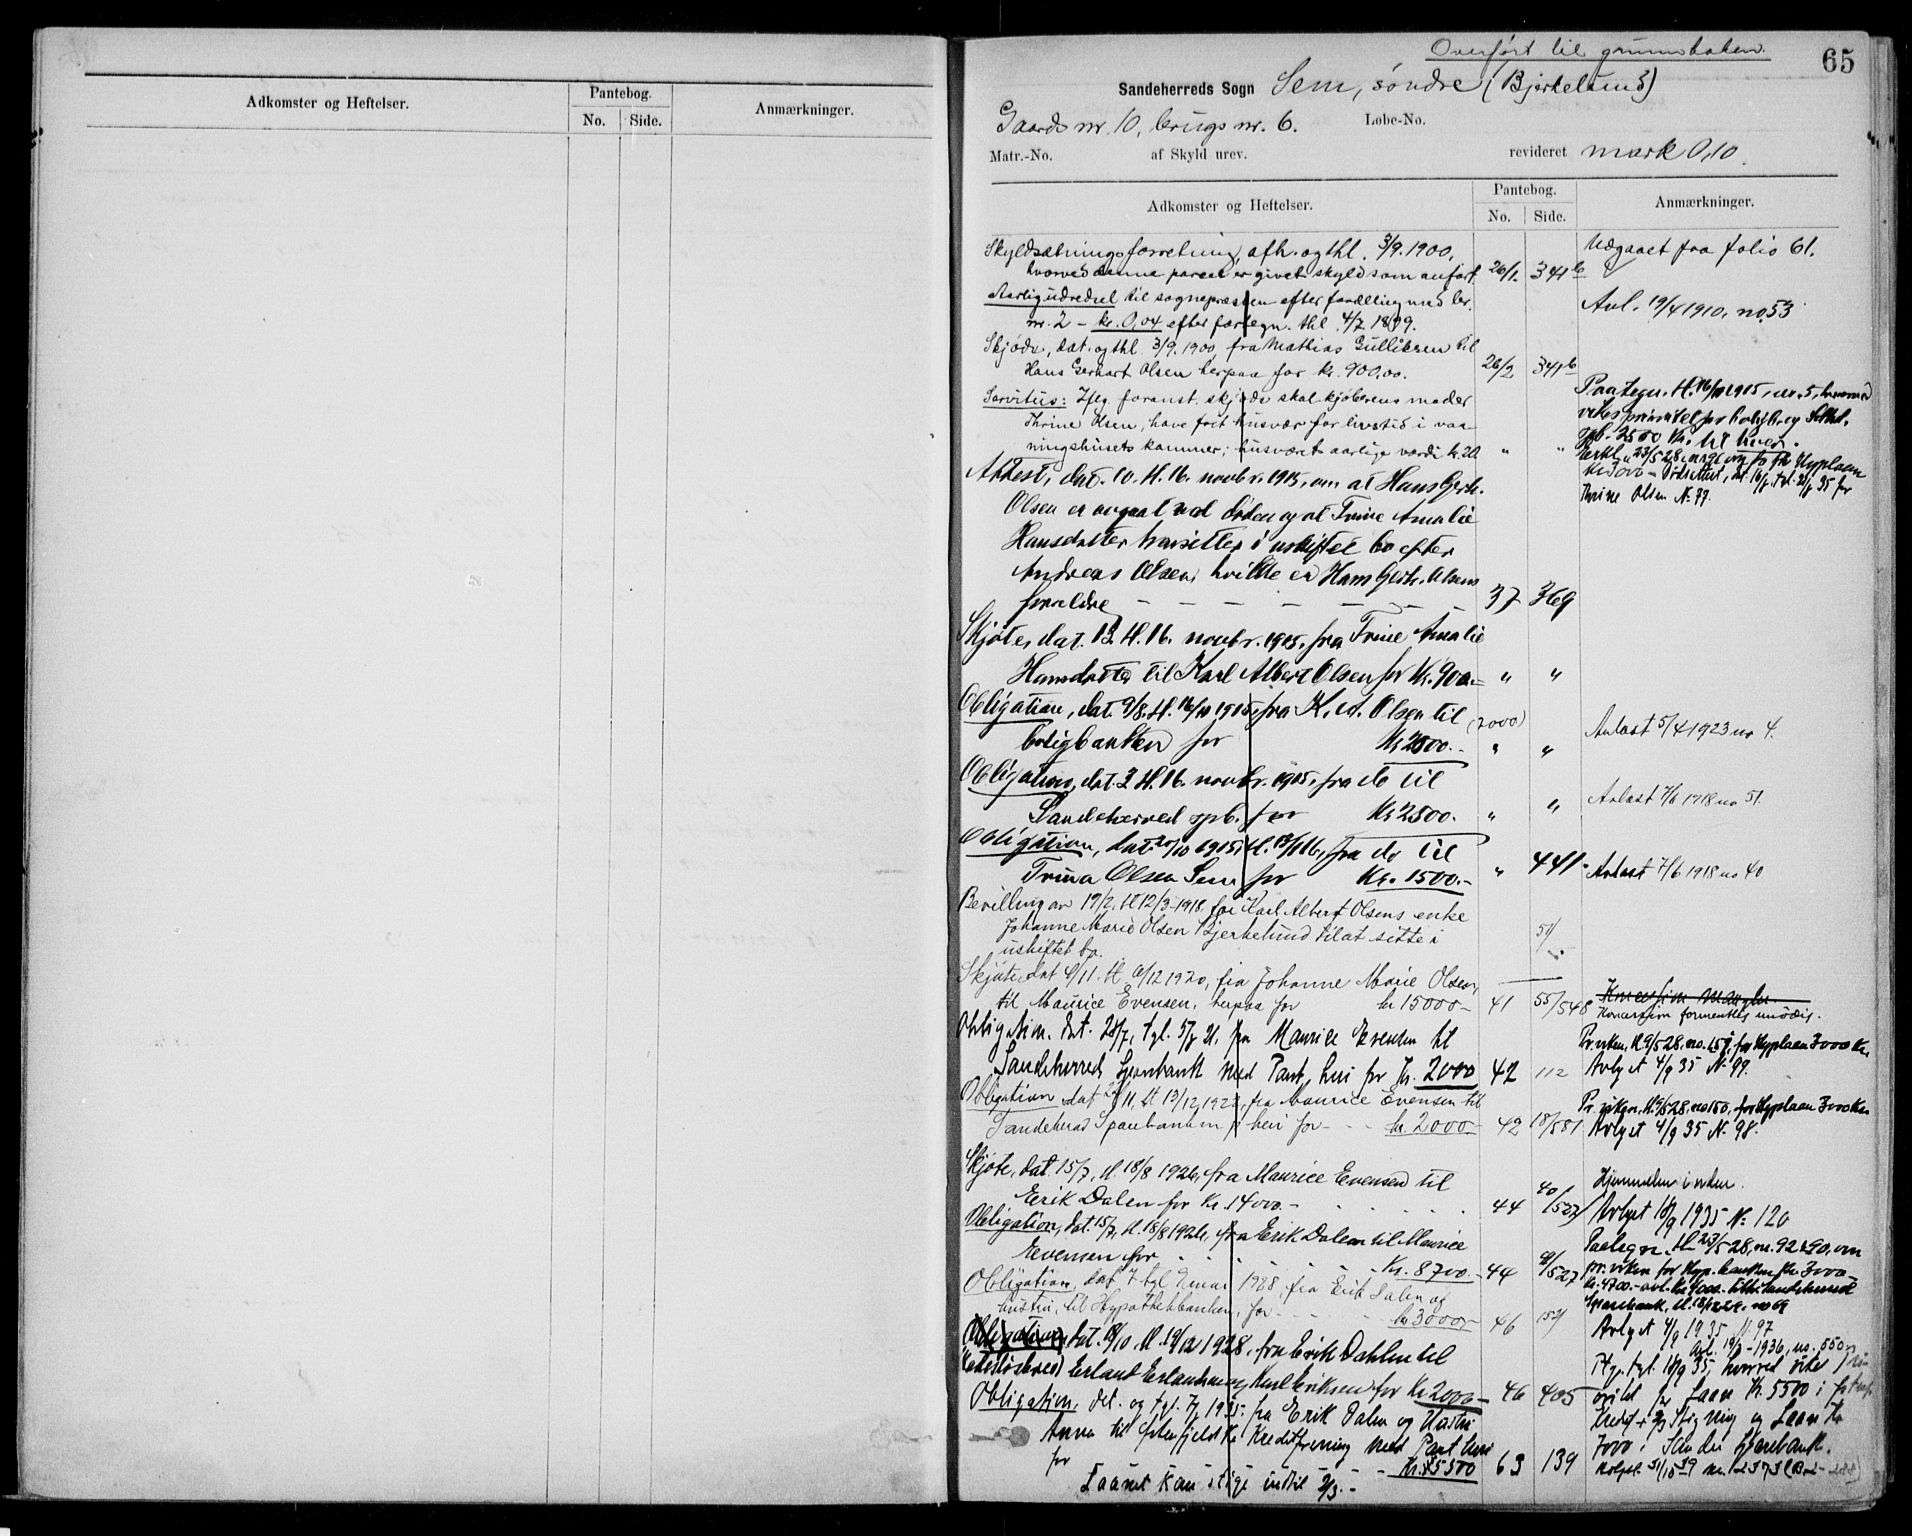 Adkomster og Heftelser.
Pantebog.
No. Side.
Anmærkninger.
Overført til grunnboken.
65
Sandeherreds Sogn Sem, søndre (Bjerkelund)
Gaards nr. 10, brugs nr. 6. Løbe-No.
Matr.-No. af Skyld urev. revideret mark 0,10.
Adkomster og Heftelser.
Pantebog.
No. Side.
Anmærkninger.
Skyldsætningsforretning, afh. og thl. 3/9. 1900,
hvorved denne parcel er givet skyld som anført 26/1. 341b
Udgaaet fra folio 61.
Aarlig udredsel til sognepræsten efter fordeling med br.
nr. 2 - kr. 0,04 efter fortegn. thl. 4/7 1899.
Avl. 19/4 1910, no. 53
Skjøde, dat. og thl. 3/9. 1900, fra Mathias Gulliksen til
Hans Gerhart Olsen herpaa for kr. 900,00. 26/2 341b
Servitus: Ifølg. foranst. skjøde skal kjøberens moder
Thrine Olsen, have frit husvær for livstid i vaa-
ningshusets kammer; husværets aarlige værdi kr. 20 " "
Paategn. tl. 16/11 1915, nr. 5, hvorved
viker prioritet for boligbk. og Sandeh.
spb. 2500 Kr. til hver.
Thrine Olsen N. 77.
Attest, dat. 10. tl. 16. novbr. 1915, om at Hans Gerh.
Olsen er avgaat ved døden og at Trine Amalie
Hansdatter hensitter i uskiftet bo efter
Andreas Olsen, hvilke er Hans Gerh. Olsens
forældre - - - - - - 37 369
Skjøte, dat. 13. tl. 16. novbr. 1915, fra Trine Amalie
Hansdatter til Karl Albert Olsen for Kr. 900.- " "
Obligation, dat. 9/8. tl. 16/11 1915, fra K. A. Olsen til (2000)
boligbanken for Kr. 2500.- " "
Avløst 5/4 1923 no 4.
Obligation, dat. 3. tl. 16. novbr. 1915, fra do til
Sandeherred spb. for Kr. 2500. " "
Avløst 7/6 1918 no 51.
Obligation, dat. 20/10 1915, tl. 18/1 16, fra do til
Trina Olsen Sem for Kr. 1500.- " 441.
Avløst 7/6 1918 no 40
Bevilling av 19/2. tl 12/3-1918 for Karl Albert Olsens enke
Johanne Marie Olsen Bjerkelund til at sitte i
uskiftet bo.
Skjøte, dat 9/11. tl 6/12 1920, fra Johanne Marie Olsen,
til Maurice Evensen, herpaa for kr. 15000- 41 55/548
Koncession mangler
Koncession formentlig unødig.
Obligation. dat. 28/7, tgl. 5/8 21. fra Maurice Evensen til
Sandeherred Sparebank med Pant heri for Kr. 2000 42 112
Pr. viken, tl. 9/5 28, no. 151, for Hyplaan 3000 Kr.
Avlyst 4/9 35 N. 99.
Obligation dat 11, tl 13/12, 1922, fra Maurice Evensen til
Sandeherred Sparebanken p heri for - - kr. 2000- 42 18/581
Pr. viken, tl. 9/5 28, no 150, for Hyplaan 3000 Kr.
Avlyst 4/9 35 N. 98.
Skjøte, dat 15/7, tl. 18/8 1926, fra Maurice Evensen til
Erik Dalen for Kr. 14000.- 44 40/527
Hjemmelen i orden.
Obligation, dat. 15/7, tl. 18/8 1926, fra Erik Dalen til Maurice
Evensen for - Kr. 8700.- 44 40/527
Avlyst 18/9 1935 N. 120
Paategn. tl. 23/5 28, nr. 92 & 90, om
pr. viken for Hyp. banken Kr. 3000-
Obligation, dat 7 tgl 9 mai 1928, fra Erik Dalen og
hustru, til Hypothekbanken, for - - kr 3000- 46 152
Sparebank, tl. 18/12 29. no 69
Avlyst 4/9 1935 N. 97
Obligation, dat. 18/10 tl. 19/12 1928, fra Erik Dahlen til
(Skadesløsbrev) Erland Erlandsen og Karl Eriksen for Kr 2000- 46 405
Obligation, dat. og tgl. 7/9 1935. fra Erik Dalen og Hustru
Anna til Østenfjeldske Kreditforening med Pant heri
for Kr. 5500 63 139
Laanet kan stige indtil 2/3. -
Ptg. tgl. 18/9 35, hvorved viker prio
ritet for Laan Kr. 5500 i
Kredit + 2/3 Stigning og Laan Kr
3000 i Sandeh Sparebank.